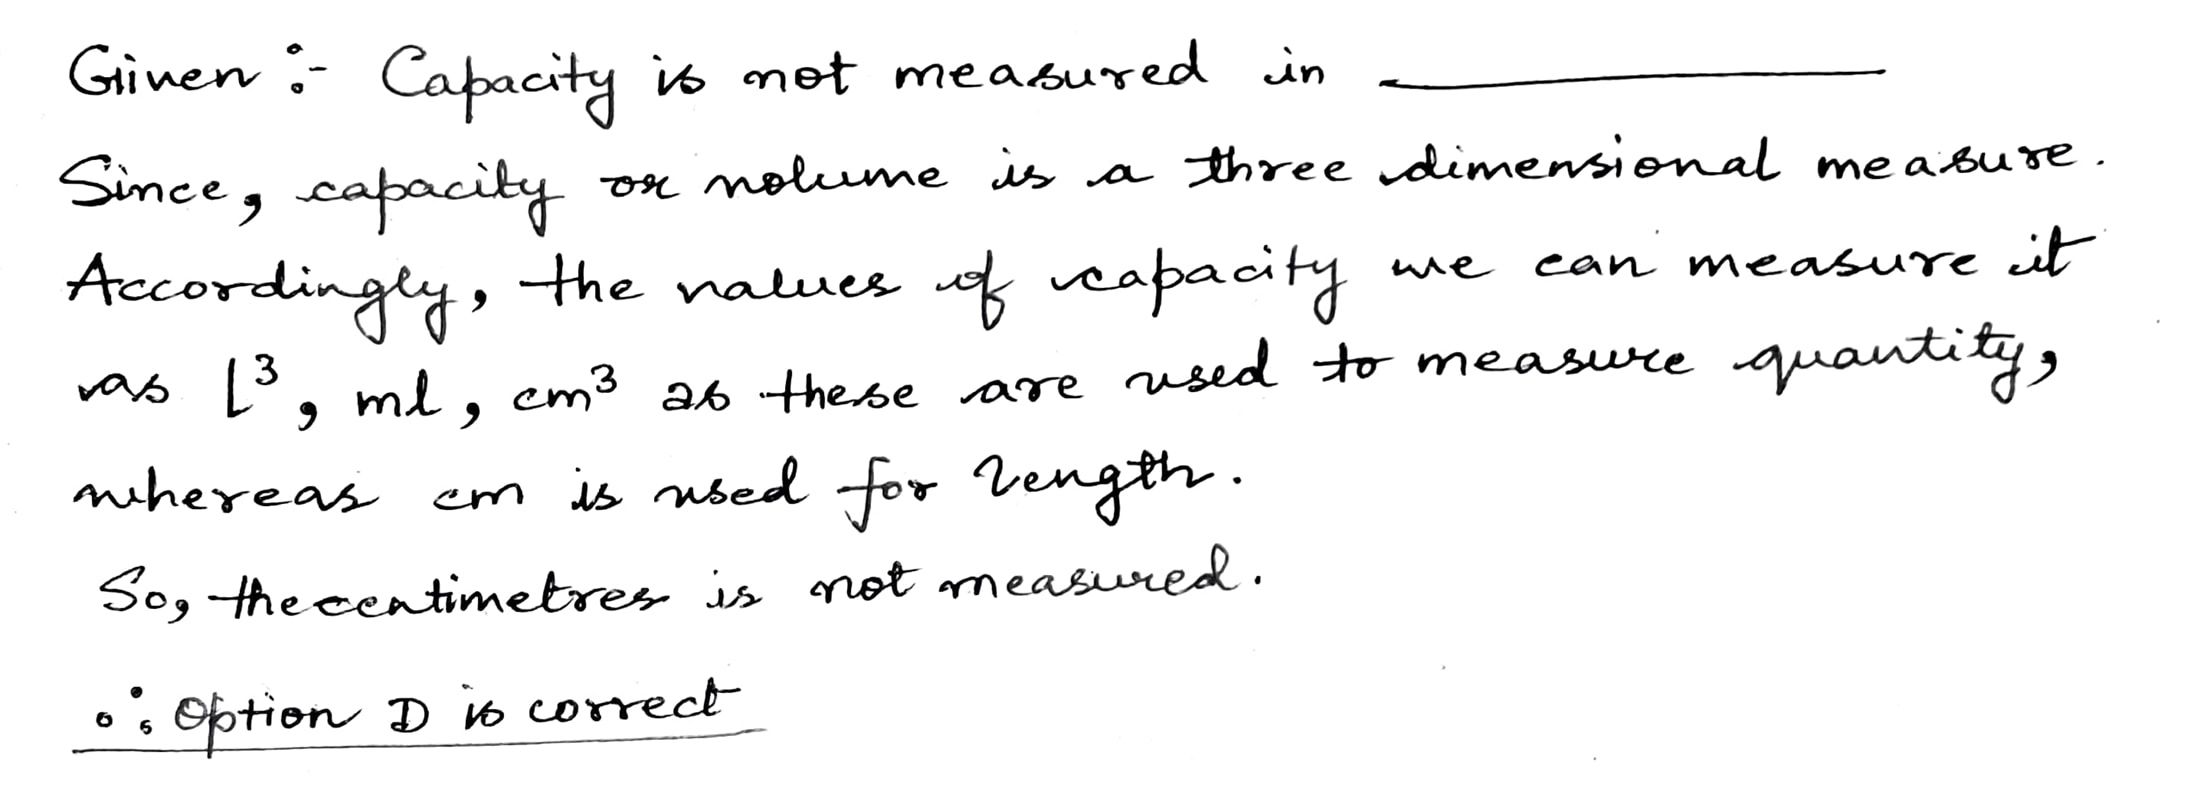 Given :- Capacity is not measured in ________
Since, capacity or volume is a three dimensional measure.
Accordingly, the values of capacity we can measure it
as L³, ml, cm³ as these are used to measure quantity,
whereas cm is used for length.
So, the centimetres is not measured.
∴ Option D is correct